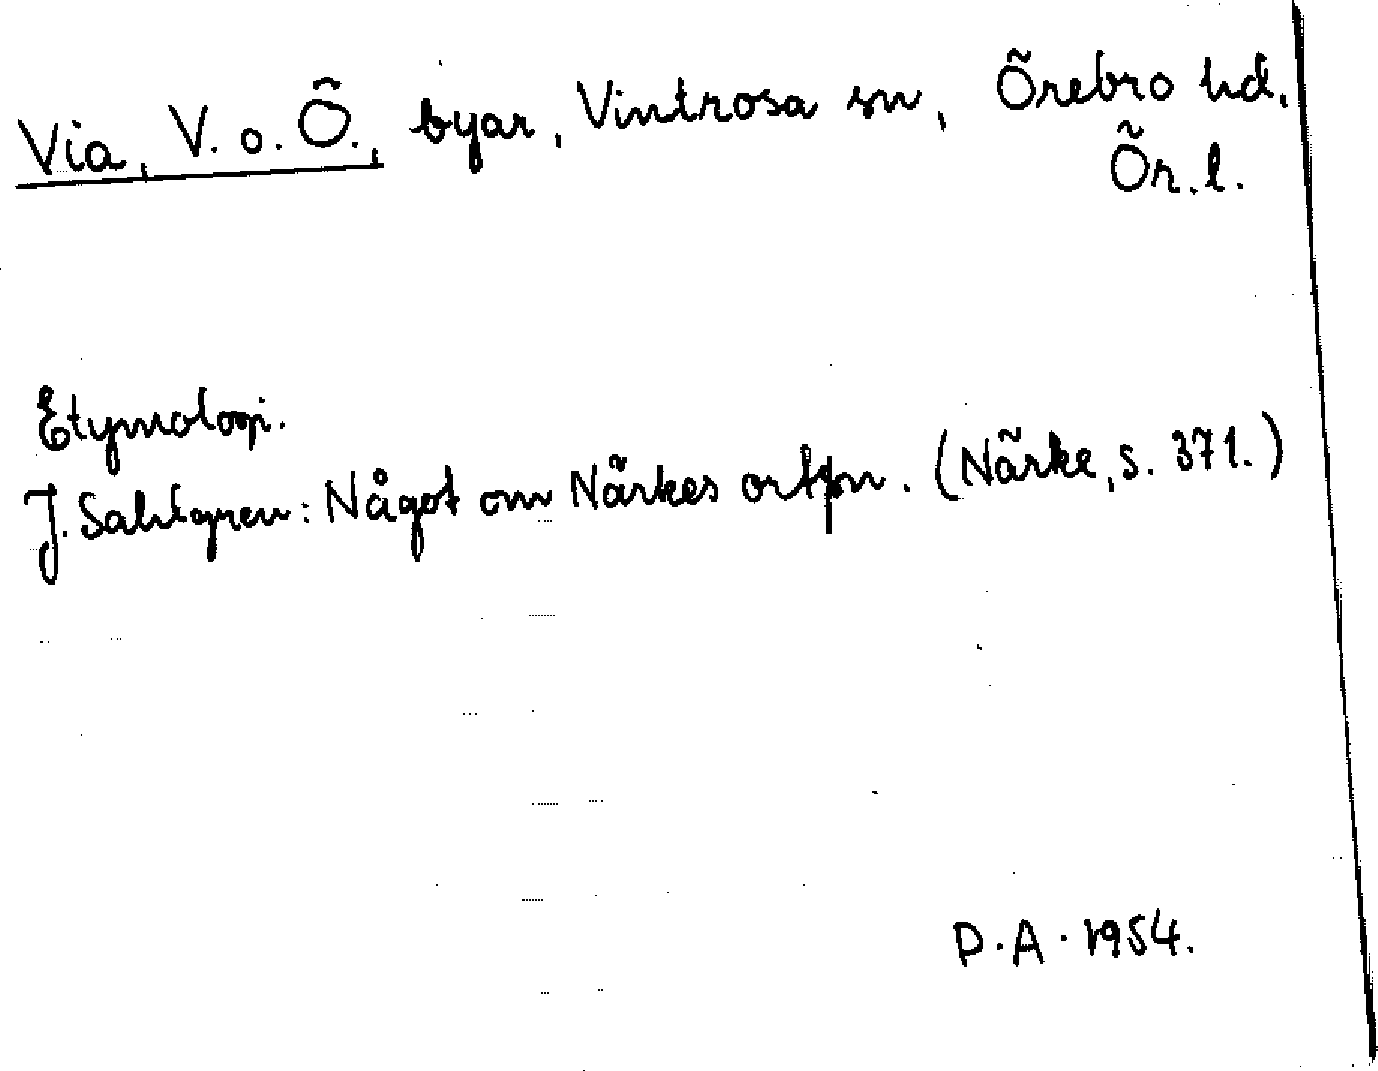 Via, V. o. Ö., byar, Vintrosa sn, Örebro hd.
Ör. l.
Etymologi.
J. Sahlgren: Något om Närkes ortsn. (Närke, s. 371.)
D. A. 1954.